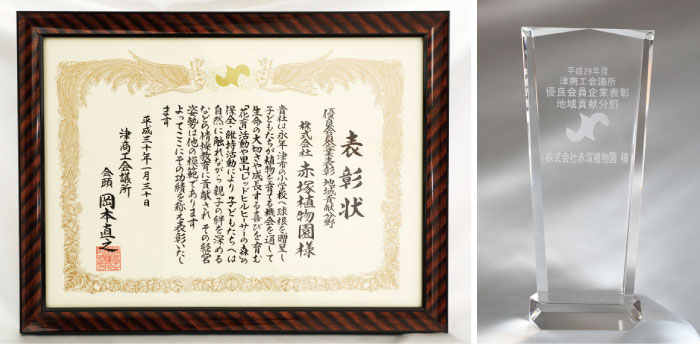 表彰状
優良会員企業表彰 地域貢献分野
株式会社 赤塚植物園様
貴社は永年津市の小学校へ球根を贈呈し
子どもたちが植物を育てる機会を通して
生命の大切さや成長する喜びを育む
「花育」活動や里山「レッドヒルヒーサーの森」の
保全・維持活動により子どもたちへは
自然に触れながら親子の絆を深める
などの情操教育に貢献されその経営
姿勢は他の模範であります
よってここにその功績を称え表彰いたし
ます
平成三十年一月三十日
津商工会議所
会頭 岡本直之
平成29年度
津商工会議所
優良会員企業表彰
地域貢献分野
株式会社赤塚植物園 様